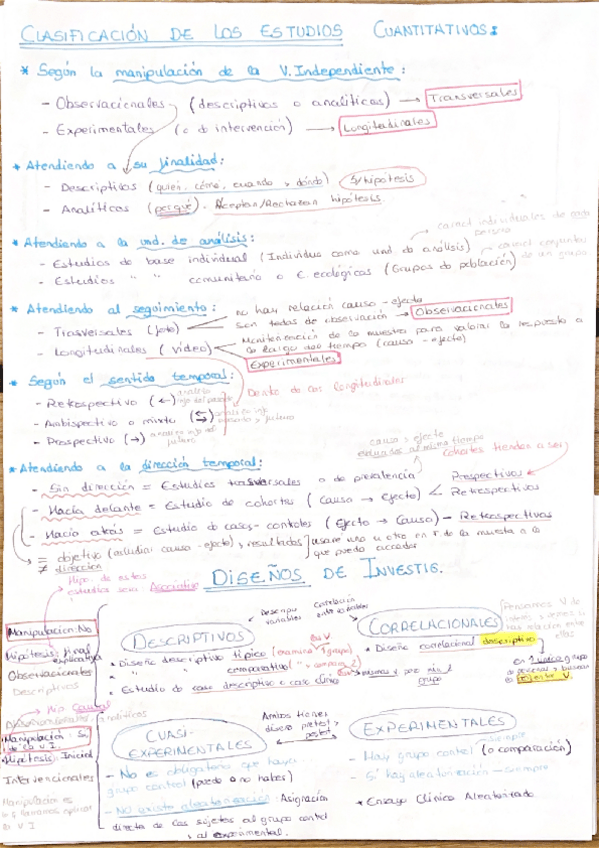 CLASIFICACIÓN DE LOS ESTUDIOS CUANTITATIVOS:
* Según la manipulación de la V. Independiente:
- Observacionales (descriptivos o analíticos) → Transversales
- Experimentales (o de intervención) → Longitudinales
* Atendiendo a su finalidad:
- Descriptivos (quien, cómo, cuando y dónde) S/hipótesis
- Analíticos (por qué). Aceptan/Rechazan hipótesis.
* Atendiendo a la und. de análisis:
carnet individuales de cada persona
- Estudios de base individual (Individuo como und. de análisis)
carnet conjuntos de un grupo
- Estudios " " comunitario o E. ecológicos (Grupos de población)
* Atendiendo al seguimiento:
no hay relación causa - efecto
- Trasversales (foto) son todas de observación → Observacionales
- Longitudinales (video) Mantenimiento de la muestra para valorar la respuesta a lo largo del tiempo (causa - efecto)
Experimentales
* Según el sentido temporal:
Dentro de los longitudinales
- Retrospectivo (←)
- Ambispectivo o mixto (⇆)
- Prospectivo (→)
causa y efecto estudiados al mismo tiempo
Cohortes tienden a ser
* Atendiendo a la dirección temporal:
- Sin dirección = Estudios trasversales o de prevalencia
- Hacia delante = Estudio de cohortes (Causa → efecto) < Prospectivos Retrospectivos
- Hacia atrás = Estudio de casos-controles (Efecto → Causa) - Retrospectivas
= objetivo (estudiar causa - efecto) y resultados
≠ dirección
usaré uno u otro en f de la muestra a la que puedo acceder
Hipo. de estos estudios será Asociativa
DISEÑOS DE INVESTIG.
Manipulación: No
Hipótesis: final
Observacionales
Descriptivos
Describen variables
Correlación entre variables
DESCRIPTIVOS
CORRELACIONALES
* Diseño descriptivo típico (examina 1 grupo)
" " comparativo (" y compara 2)
* Estudio de caso descriptivo o caso clínico
* Diseño correlacional descriptivo
en 1 único grupo
Hip Causal
Manipulación: Sí de la V I.
Hipótesis: Inicial
Intervencionales
CUASI-EXPERIMENTALES
Ambos tienen diseño pretest y postest
EXPERIMENTALES
- No es obligatorio que haya grupo control (puede o no haber)
- No existe aleatorización: Asignación directa de los sujetos al grupo control y al experimental.
siempre
- Hay grupo control (o comparación)
- Sí hay aleatorización - siempre
* Ensayo Clínico Aleatorizado